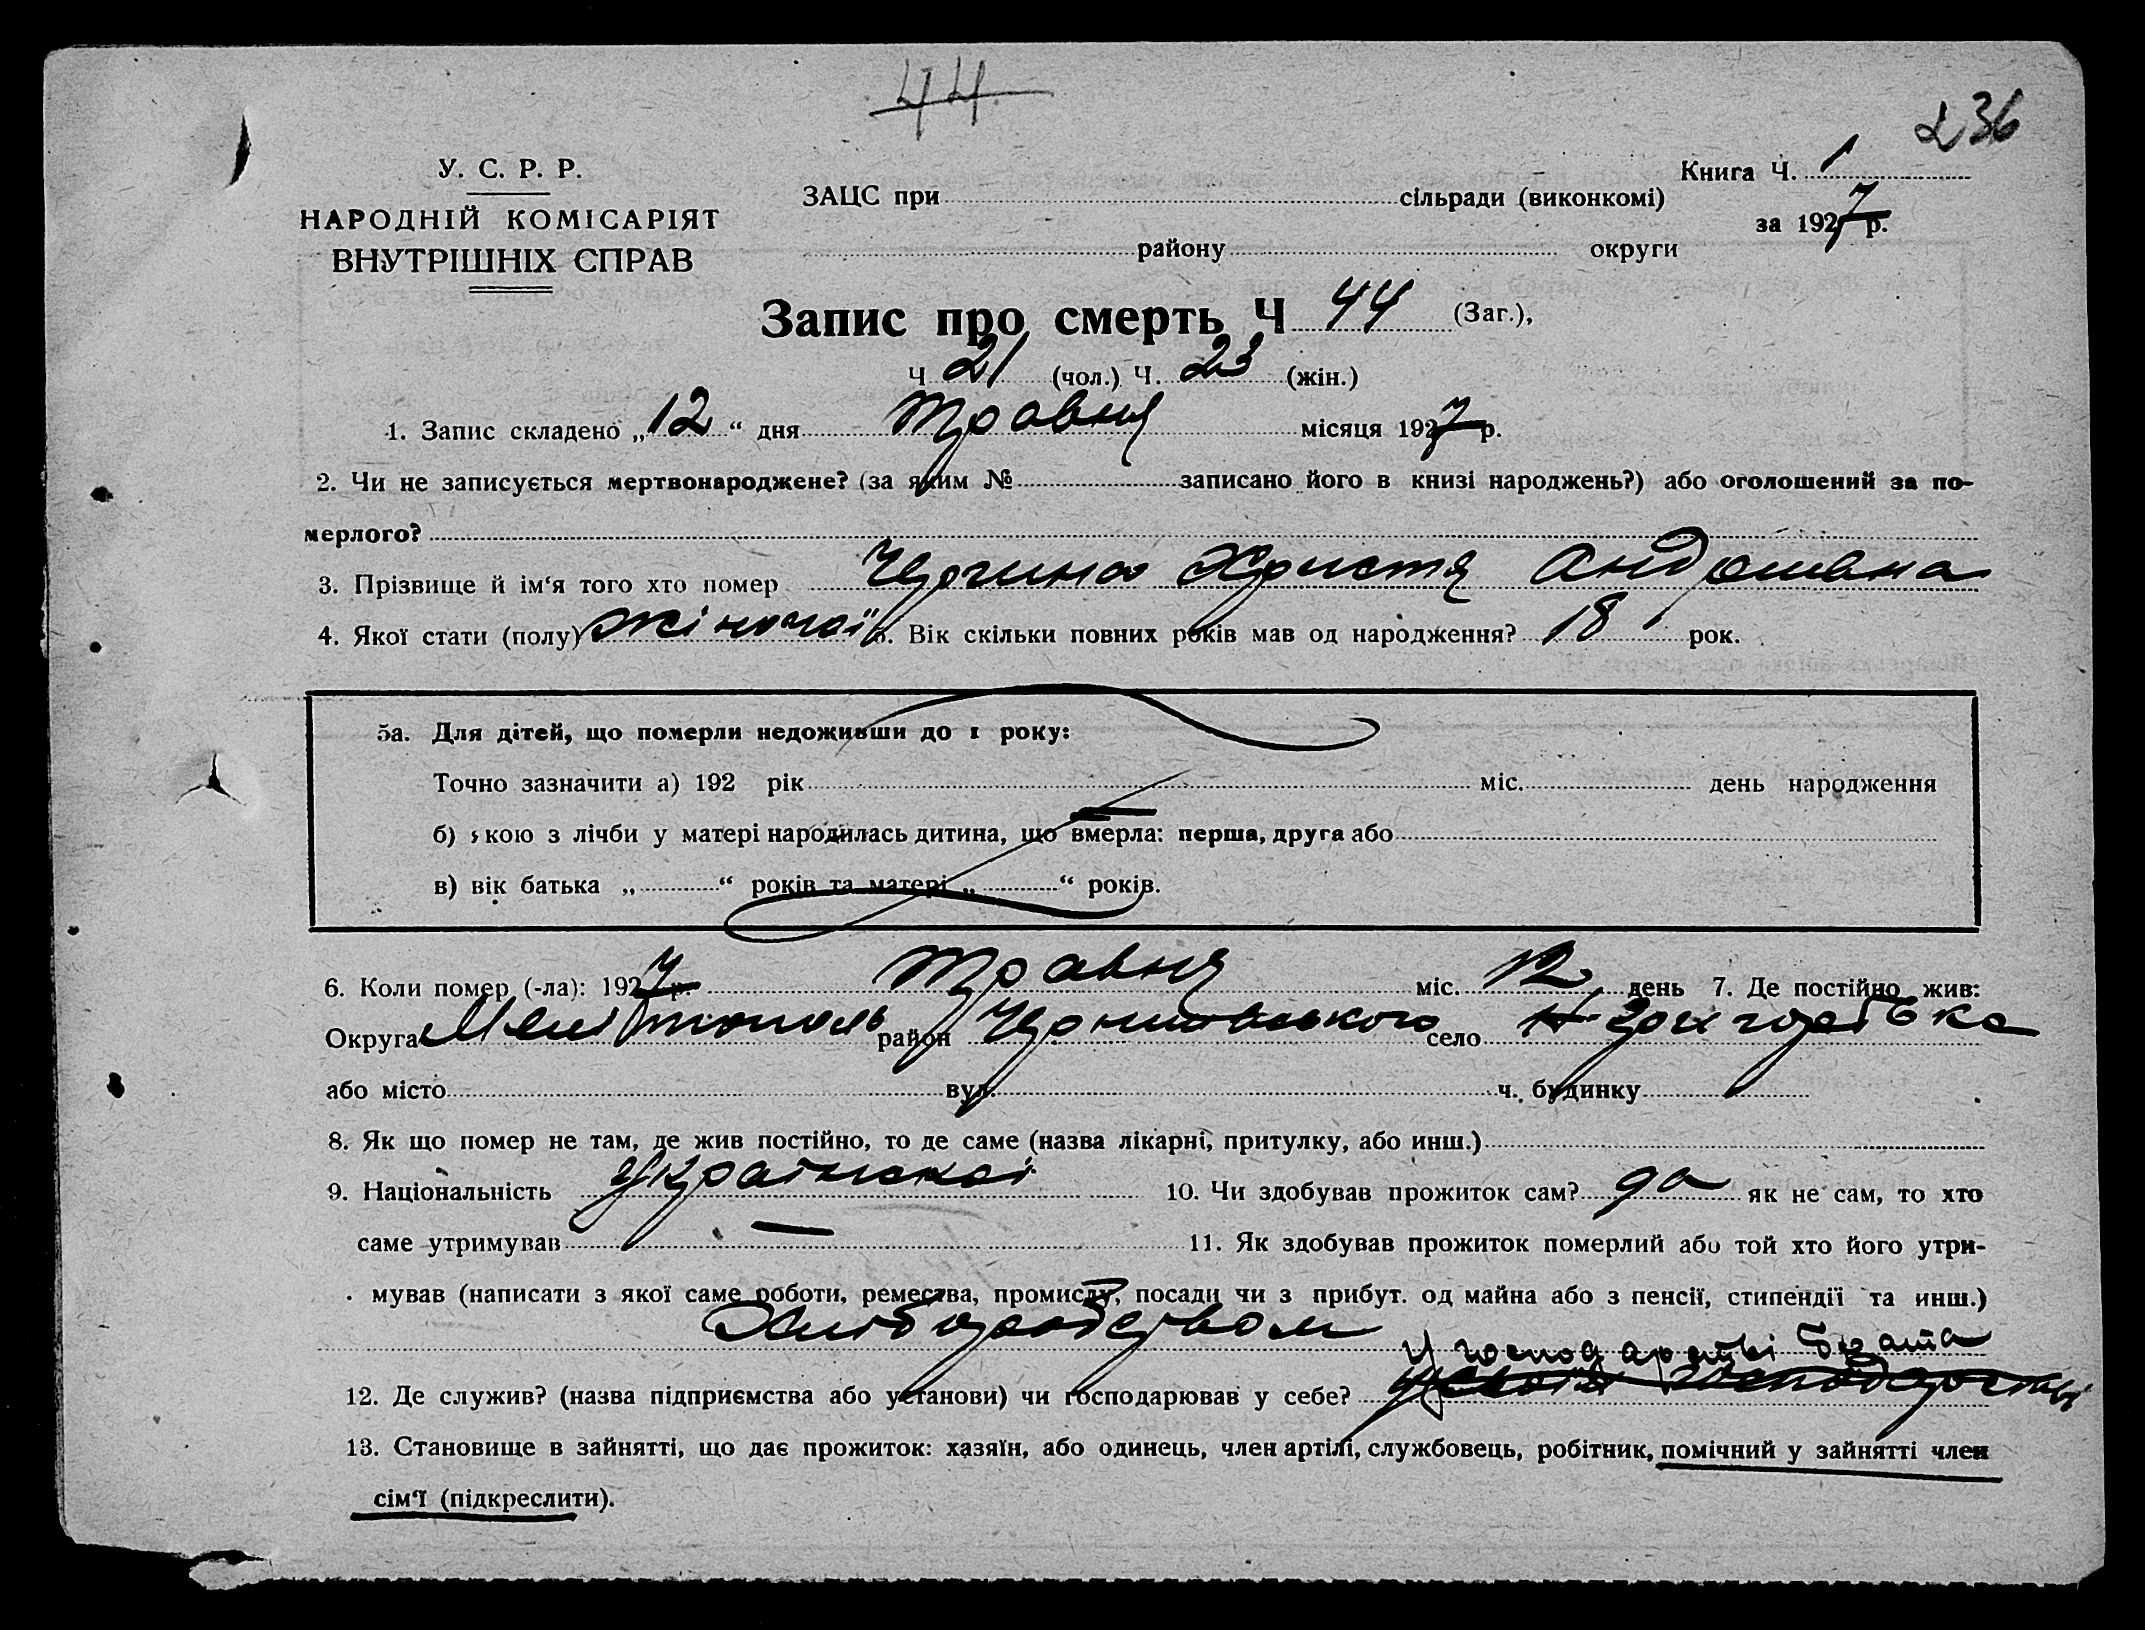 44
236
У. С. Р. Р.
НАРОДНІЙ КОМІСАРІЯТ
ВНУТРІШНІХ СПРАВ
Книга Ч. 1
за 1927 р.
ЗАЦС при сільради (виконкомі)
району округи
Запис про смерть Ч 44 (Заг.),
Ч 21 (чол.) Ч. 23 (жін.)
1. Запис складено „12“ дня травня місяця 1927 р.
2. Чи не записується мертвонароджене? (за яким № записано його в книзі народжень?) або оголошений за по-
мерлого?
3. Прізвище й ім‘я того хто помер Христя
4. Якої стати (полу) жіночої 5. Вік скільки повних років мав од народження? 18 рок.
5а. Для дітей, що померли недоживши до 1 року:
Точно зазначити а) 192 рік міс. день народження
б) якою з лічби у матері народилась дитина, що вмерла: перша, друга або
в) вік батька „ “ років та матері „ “ років.
6. Коли помер (-ла): 1927 р. травня міс. 12 день 7. Де постійно жив:
Округа Мелітополь район село
або місто вул. ч. будинку
8. Як що помер не там, де жив постійно, то де саме (назва лікарні, притулку, або инш.)
9. Національність 10. Чи здобував прожиток сам? да як не сам, то хто
саме утримував — 11. Як здобував прожиток померлий або той хто його утри-
мував (написати з якої саме роботи, ремества, промислу, посади чи з прибут. од майна або з пенсії, стипендії та инш.)
Хліборобством
У господарстві брата
12. Де служив? (назва підприємства або установи) чи господарював у себе?
13. Становище в зайнятті, що дає прожиток: хазяїн, або одинець, член артілі, службовець, робітник, помічний у зайнятті член
сім‘ї (підкреслити).